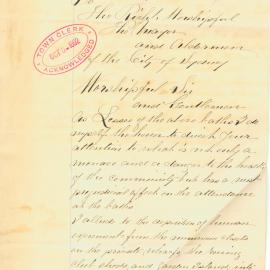 To
The Right Worshipful
The Mayor
and Aldermen
of the City of Sydney
TOWN CLERK
OCT
ACKNOWLEDGED
Worshipful Sir
and Gentlemen
As Lessee of the above baths I do
myself the honor to direct your
attention to what is not only a
menace and a danger to the health
of the community but has a most
prejudicial effect on the attendance
at the baths
I allude to the deposition of human
excrement from the
on the private wharfs, the
and Garden Island into